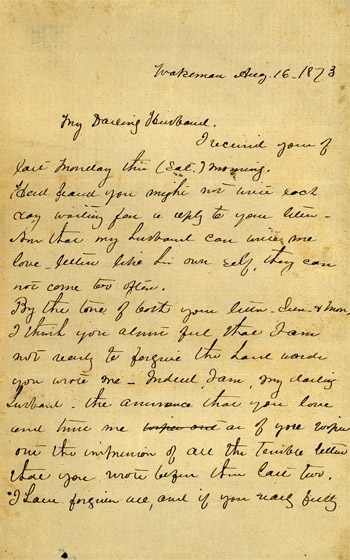 Wakeman Aug. 16 - 1873
My Darling Husband.
I received your of
last Monday this (Sat.) morning.
Had feared you might not write each
day waiting for a reply to your letter -
Now that my husband can write me
love-letters like his own self, they can
not come too often.
By the tone of both your letters - Sun. & Mon,
I think you almost feel that I am
not ready to forgive the hard words
you wrote me - Indeed I am, my darling
husband - the assurance that you love
and trust me wiped out as if you wiped
out the impression of all the terrible letters
that you wrote before these last two.
I have forgiven all, and if you really fully